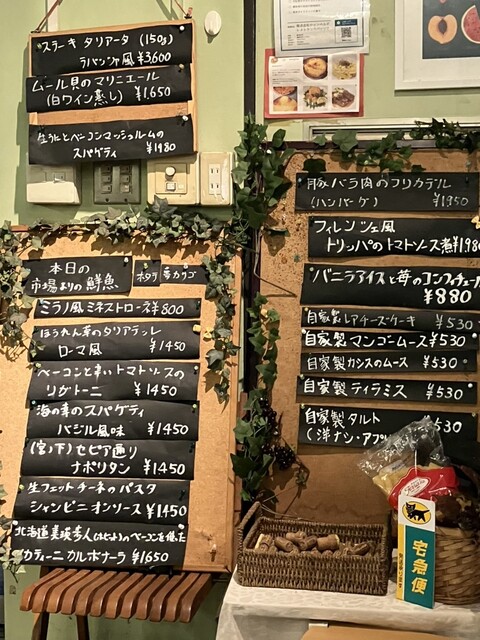 ステーキ タリアータ (150g)
ラパンツァ風 ¥3,600
ムール貝のマリニエール
(白ワイン蒸し) ¥1,650
生うにとベーコンマッシュルムの
スパゲティ ¥1980
本日の
市場よりの鮮魚
ホタテ
ミラノ風ミネストローネ ¥800
ほうれん草のタリアテッレ
ローマ風 ¥1450
ベーコンと辛いトマトソースの
リガトーニ ¥1450
海の幸のスパゲティ
バジル風味 ¥1.450
(宮ノ下)セピア通り
ナポリタン ¥1450
生フェットチーネのパスタ
シャンピニオンソース ¥1450
北海道美瑛
のベーコンを使った
カルボナーラ ¥1650
豚バラ肉のフリカデル
(ハンバーグ) ¥1950
フィレンツェ風
トリッパのトマトソース煮 ¥1980
バニラアイスと苺のコンフィチュール
¥880
自家製レアチーズケーキ ¥530
自家製マンゴームース ¥530
自家製カシスのムース ¥530
自家製ティラミス ¥530
自家製タルト ¥530
(洋ナシ・アプ
宅急便